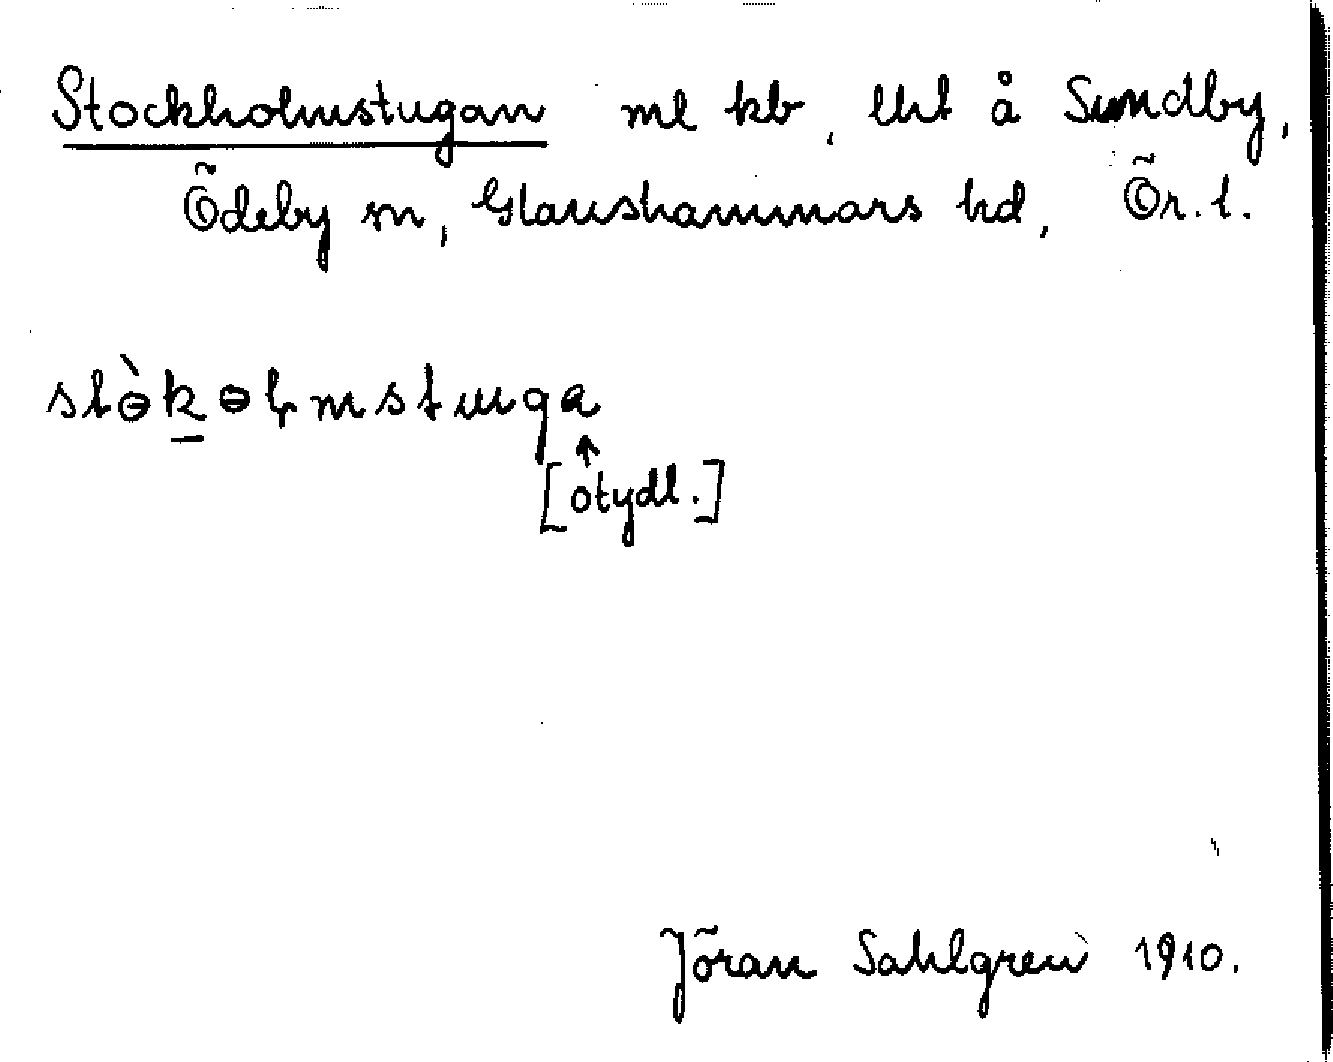 Stockholmstugan ml kb, lht å Sundby,
Ödeby sn, Glanshammars hd, Ör. l.
stɵ̀k̲ɵl̨mstuga
[otydl.]
Jöran Sahlgren 1910.